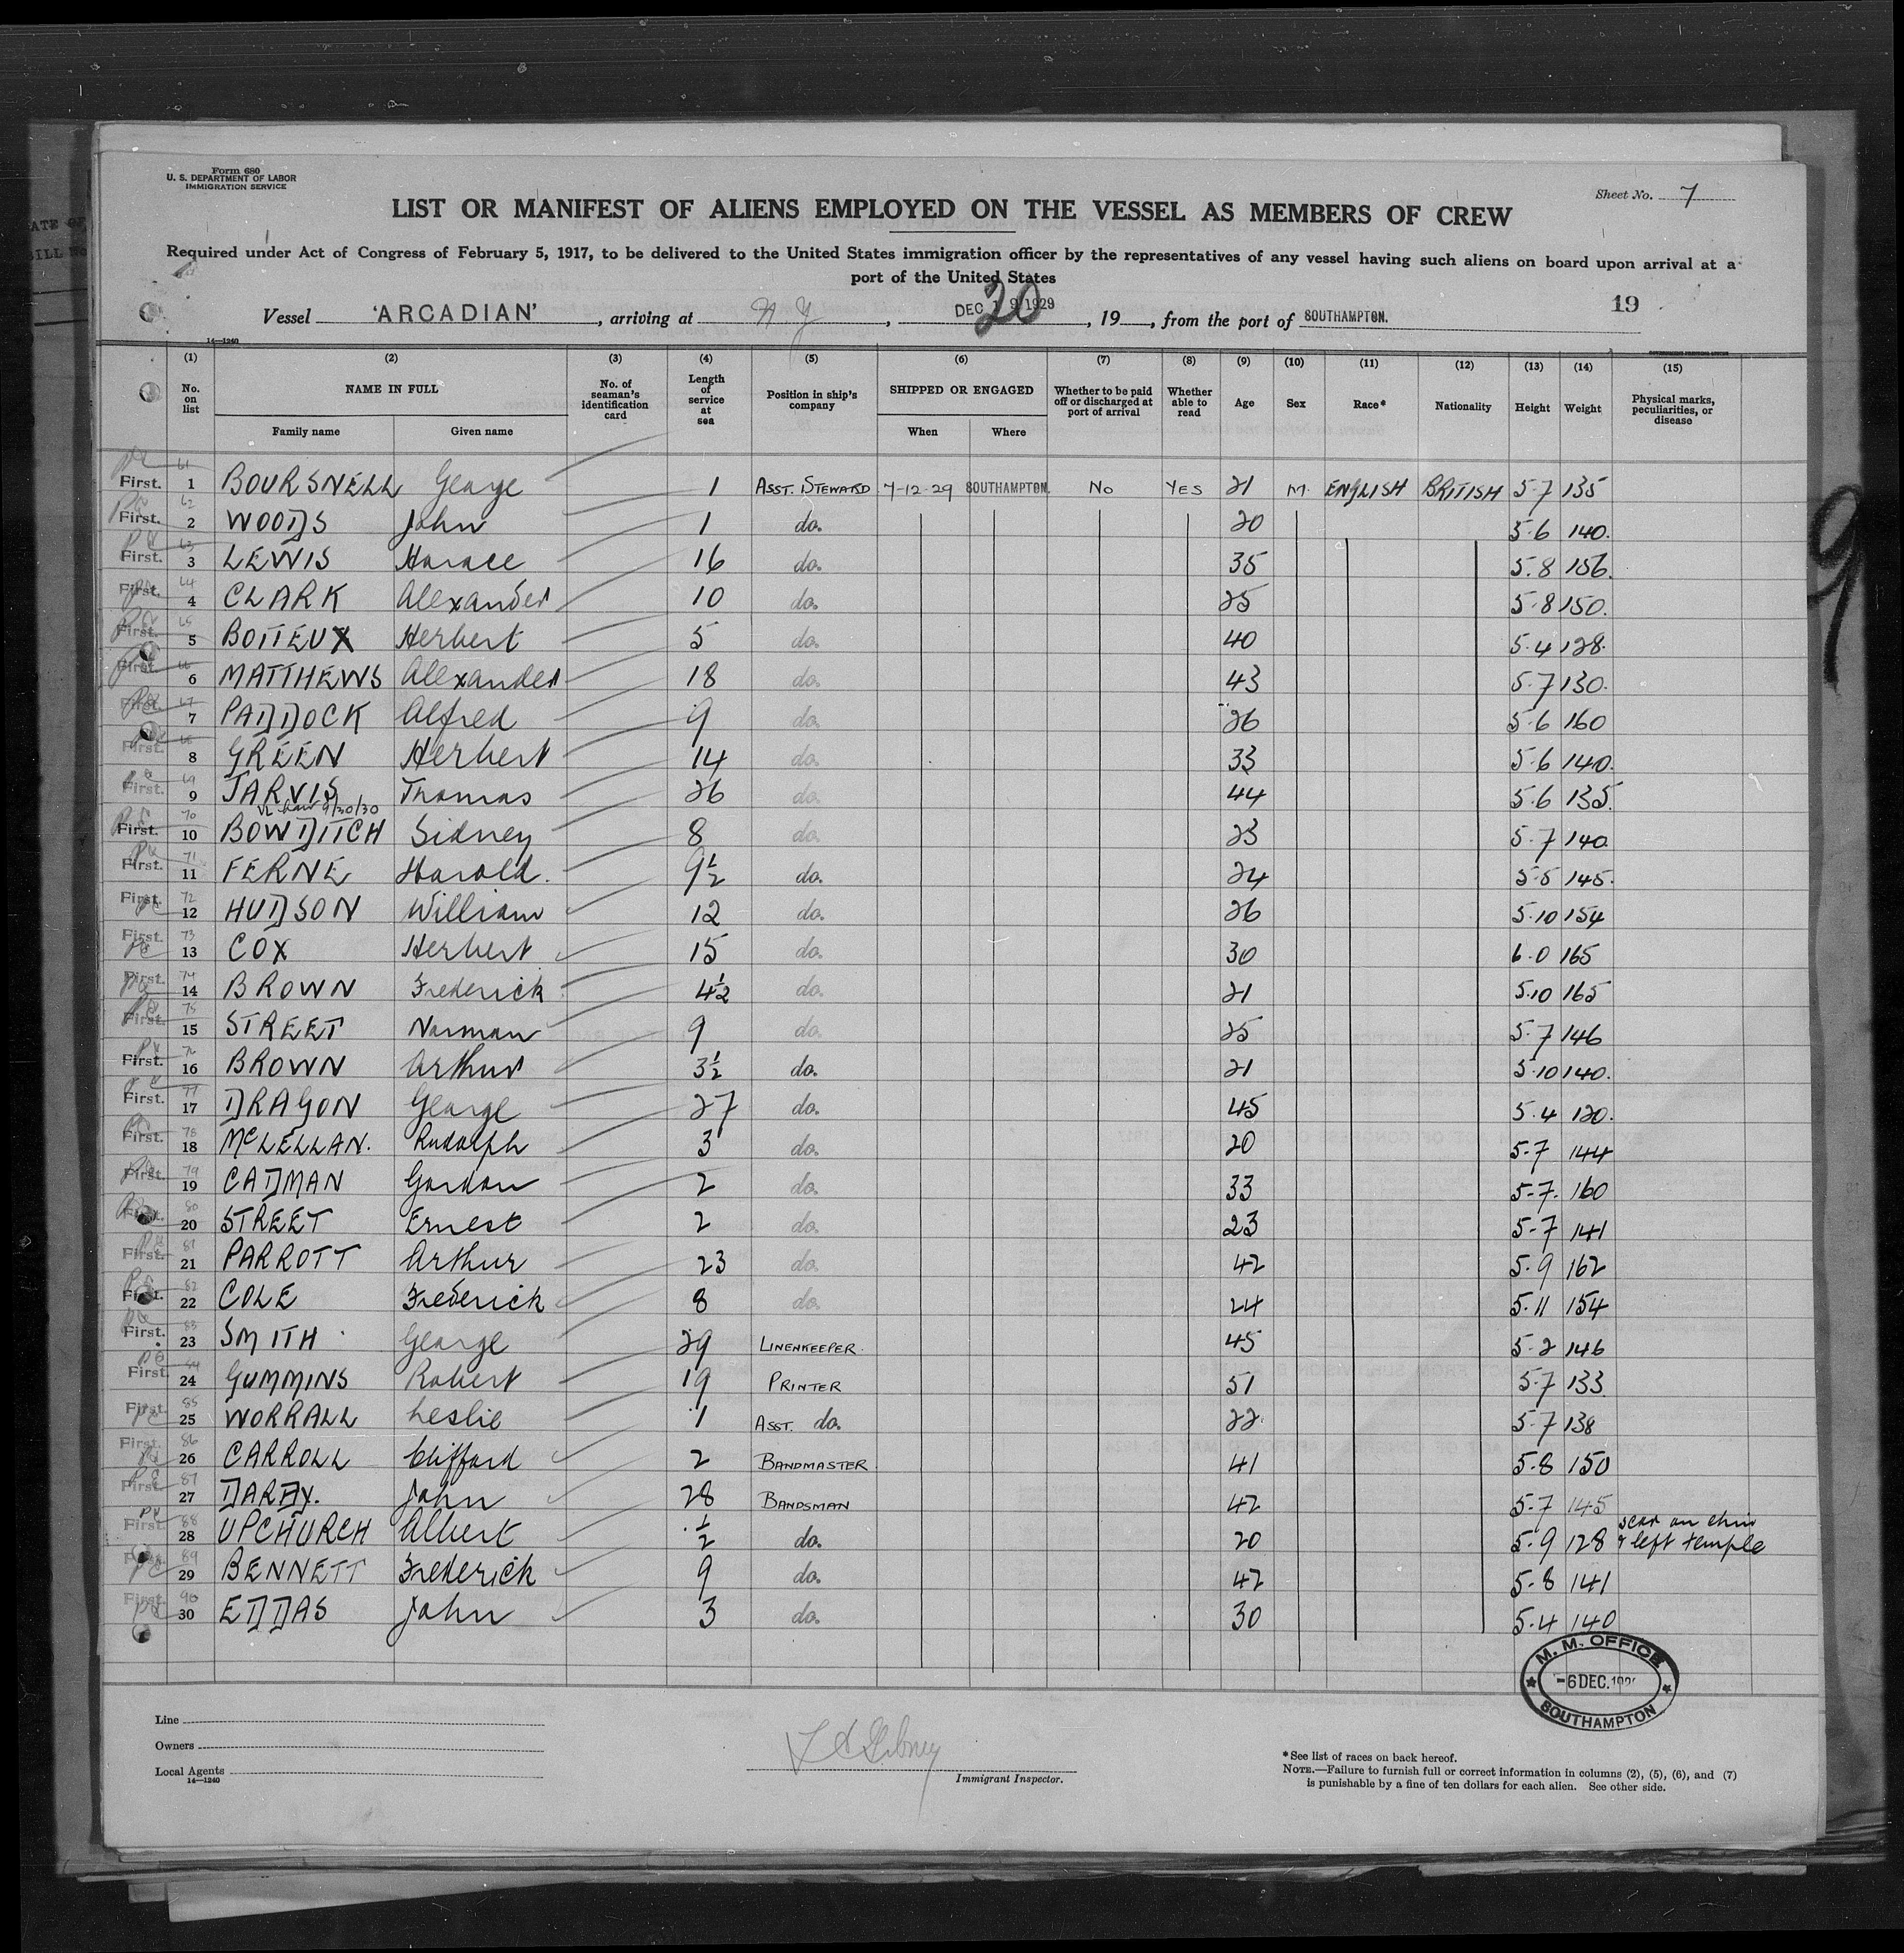 Form 680
U. S. DEPARTMENT OF LABOR
IMMIGRATION SERVICE
Sheet No. 7
LIST OR MANIFEST OF ALIENS EMPLOYED ON THE VESSEL AS MEMBERS OF CREW
Required under Act of Congress of February 5, 1917, to be delivered to the United States immigration officer by the representatives of any vessel having such aliens on board upon arrival at a
port of the United States
Vessel 'ARCADIAN', arriving at N Y, DEC 19 1929 20, 19, from the port of SOUTHAMPTON. 19
14—1240
(1) (2) (3) (4) (5) (6) (7) (8) (9) (10) (11) (12) (13) (14) (15)
No. on list NAME IN FULL Family name Given name No. of seaman's identification card Length of service at sea Position in ship's company SHIPPED OR ENGAGED When Where Whether to be paid off or discharged at port of arrival Whether able to read Age Sex Race* Nationality Height Weight Physical marks, peculiarities, or disease
First. 61 1 BOURSNELL George 1 ASST. STEWARD 7-12-29 SOUTHAMPTON. No YES 21 M. ENGLISH BRITISH 5-7 135
First. 62 2 WOODS John 1 do. 20 5.6 140.
First. 63 3 LEWIS Horace 16 do. 35 5.8 156.
First. 64 4 CLARK Alexander 10 do. 25 5.8 150.
First. 65 5 BOITEUX Herbert 5 do. 40 5.4 128.
First. 66 6 MATTHEWS Alexander 18 do. 43 5.7 130.
First. 67 7 PADDOCK Alfred 9 do. 26 5.6 160
First. 68 8 GREEN Herbert 14 do. 33 5.6 140.
First. 69 9 JARVIS Thomas 26 do. 44 5.6 135.
9/20/30
First. 70 10 BOWDITCH Sidney 8 do. 23 5.7 140.
First. 71 11 FERNE Harold. 9½ do. 24 5.5 145.
First. 72 12 HUDSON William 12 do. 26 5.10 154
First. 73 13 COX Herbert 15 do. 30 6.0 165
First. 74 14 BROWN Frederick 4½ do. 21 5.10 165
First. 75 15 STREET Norman 9 do. 25 5.7 146
First. 76 16 BROWN Arthur 3½ do. 21 5.10 140.
First. 77 17 DRAGON George 27 do. 45 5.4 120.
First. 78 18 McLELLAN. Rudolph 3 do. 20 5-7 144
First. 79 19 CADMAN Gordon 2 do. 33 5-7. 160
First. 80 20 STREET Ernest 2 do. 23 5-7 141
First. 81 21 PARROTT Arthur 23 do. 42 5.9 162
First. 82 22 COLE Frederick 8 do. 24 5.11 154
First. 83 23 SMITH George 29 LINENKEEPER. 45 5-2 146
First. 84 24 GUMMINS Robert 19 PRINTER 51 5-7 133
First. 85 25 WORRALL Leslie 1 ASST. do. 22 5-7 138
First. 86 26 CARROLL Clifford 2 BANDMASTER. 41 5-8 150
First. 87 27 DARBY. John 28 BANDSMAN 42 5-7 145
First. 88 28 UPCHURCH Albert ½ do. 20 5-9 128 scar on chin & left temple
First. 89 29 BENNETT Frederick 9 do. 42 5-8 141
First. 90 30 EDDAS John 3 do. 30 5.4 140
M. M. OFFICE
-6 DEC. 192
SOUTHAMPTON
Line
Owners
Local Agents
14—1240
Immigrant Inspector.
*See list of races on back hereof.
NOTE.—Failure to furnish full or correct information in columns (2), (5), (6), and (7)
is punishable by a fine of ten dollars for each alien. See other side.
9